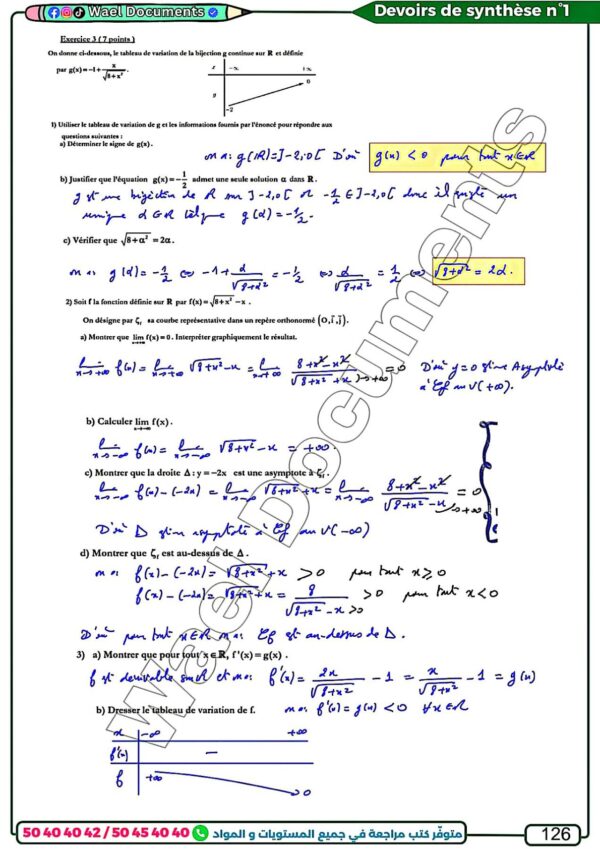 Wael Documents
Devoirs de synthèse n°1
Exercice 3 ( 7 points )
On donne ci-dessous, le tableau de variation de la bijection g continue sur R et définie
par g(x)=-1+x/√(8+x²) .
x -∞ +∞
g -2 0
1) Utiliser le tableau de variation de g et les informations fournis par l'énoncé pour répondre aux
questions suivantes :
a) Déterminer le signe de g(x).
on a: g(ℝ)=]-2,0[ D'où g(x) < 0 pour tout x∈ℝ
b) Justifier que l'équation g(x)=-1/2 admet une seule solution α dans R.
g est une bijection de ℝ sur ]-2,0[ or -1/2 ∈ ]-2,0[ donc il existe un
unique α∈ℝ tel que g(α)=-1/2.
c) Vérifier que √(8+α²) = 2α.
on a: g(α)=-1/2 ⇔ -1+α/√(8+α²) = -1/2 ⇔ α/√(8+α²) = 1/2 ⇔ √(8+α²) = 2α.
2) Soit f la fonction définie sur R par f(x)=√(8+x²) - x .
On désigne par ζf sa courbe représentative dans un repère orthonormé (O,i,j).
a) Montrer que lim x→+∞ f(x)=0. Interpréter graphiquement le résultat.
lim x→+∞ f(x)= lim x→+∞ √(8+x²)-x = lim x→+∞ (8+x²-x²)/(√(8+x²)+x)→+∞ = 0 D'où y=0 est une Asymptote
à ζf au V(+∞).
b) Calculer lim x→-∞ f(x).
lim x→-∞ f(x)= lim x→-∞ √(8+x²)-x = +∞.
c) Montrer que la droite Δ : y = -2x est une asymptote à ζf.
lim x→-∞ f(x)-(-2x)= lim x→-∞ √(8+x²)+x = lim x→-∞ (8+x²-x²)/(√(8+x²)-x)→+∞ = 0
D'où Δ est une asymptote à ζf au V(-∞)
d) Montrer que ζf est au-dessus de Δ .
on a: f(x)-(-2x)= √(8+x²)+x > 0 pour tout x≥0
f(x)-(-2x)= √(8+x²)+x = 8/(√(8+x²)-x) >0 >0 pour tout x<0
D'où pour tout x∈ℝ on a: ζf est au-dessus de Δ.
3) a) Montrer que pour tout x∈R, f'(x)=g(x).
f est dérivable sur ℝ et on a: f'(x)= 2x/√(8+x²) -1 = x/√(8+x²) -1 = g(x)
b) Dresser le tableau de variation de f. on a: f'(x)=g(x)<0 ∀x∈ℝ
x -∞ +∞
f'(x) -
f +∞ 0
Wael Documents
50 40 40 42 / 50 45 40 40 متوفّر كتب مراجعة في جميع المستويات و المواد
126